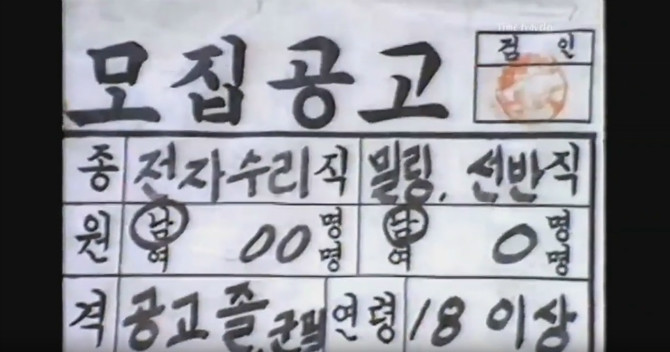 모집공고
검 인
종 전자수리직 밀링, 선반직
원 남 00 명 남 0 명
여 명 여 명
격 공고졸, 군필 연령 18 이상